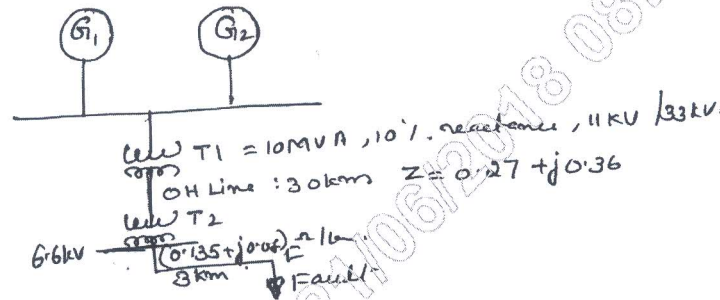 G1 G2
T1 = 10MVA, 10%. reactance, 11KV /33KV.
OH Line : 30kms Z = 0.27 + j0.36
T2
6.6KV (0.135+j0.08) Ω/km.
3km F Fault
01/06/2018 08